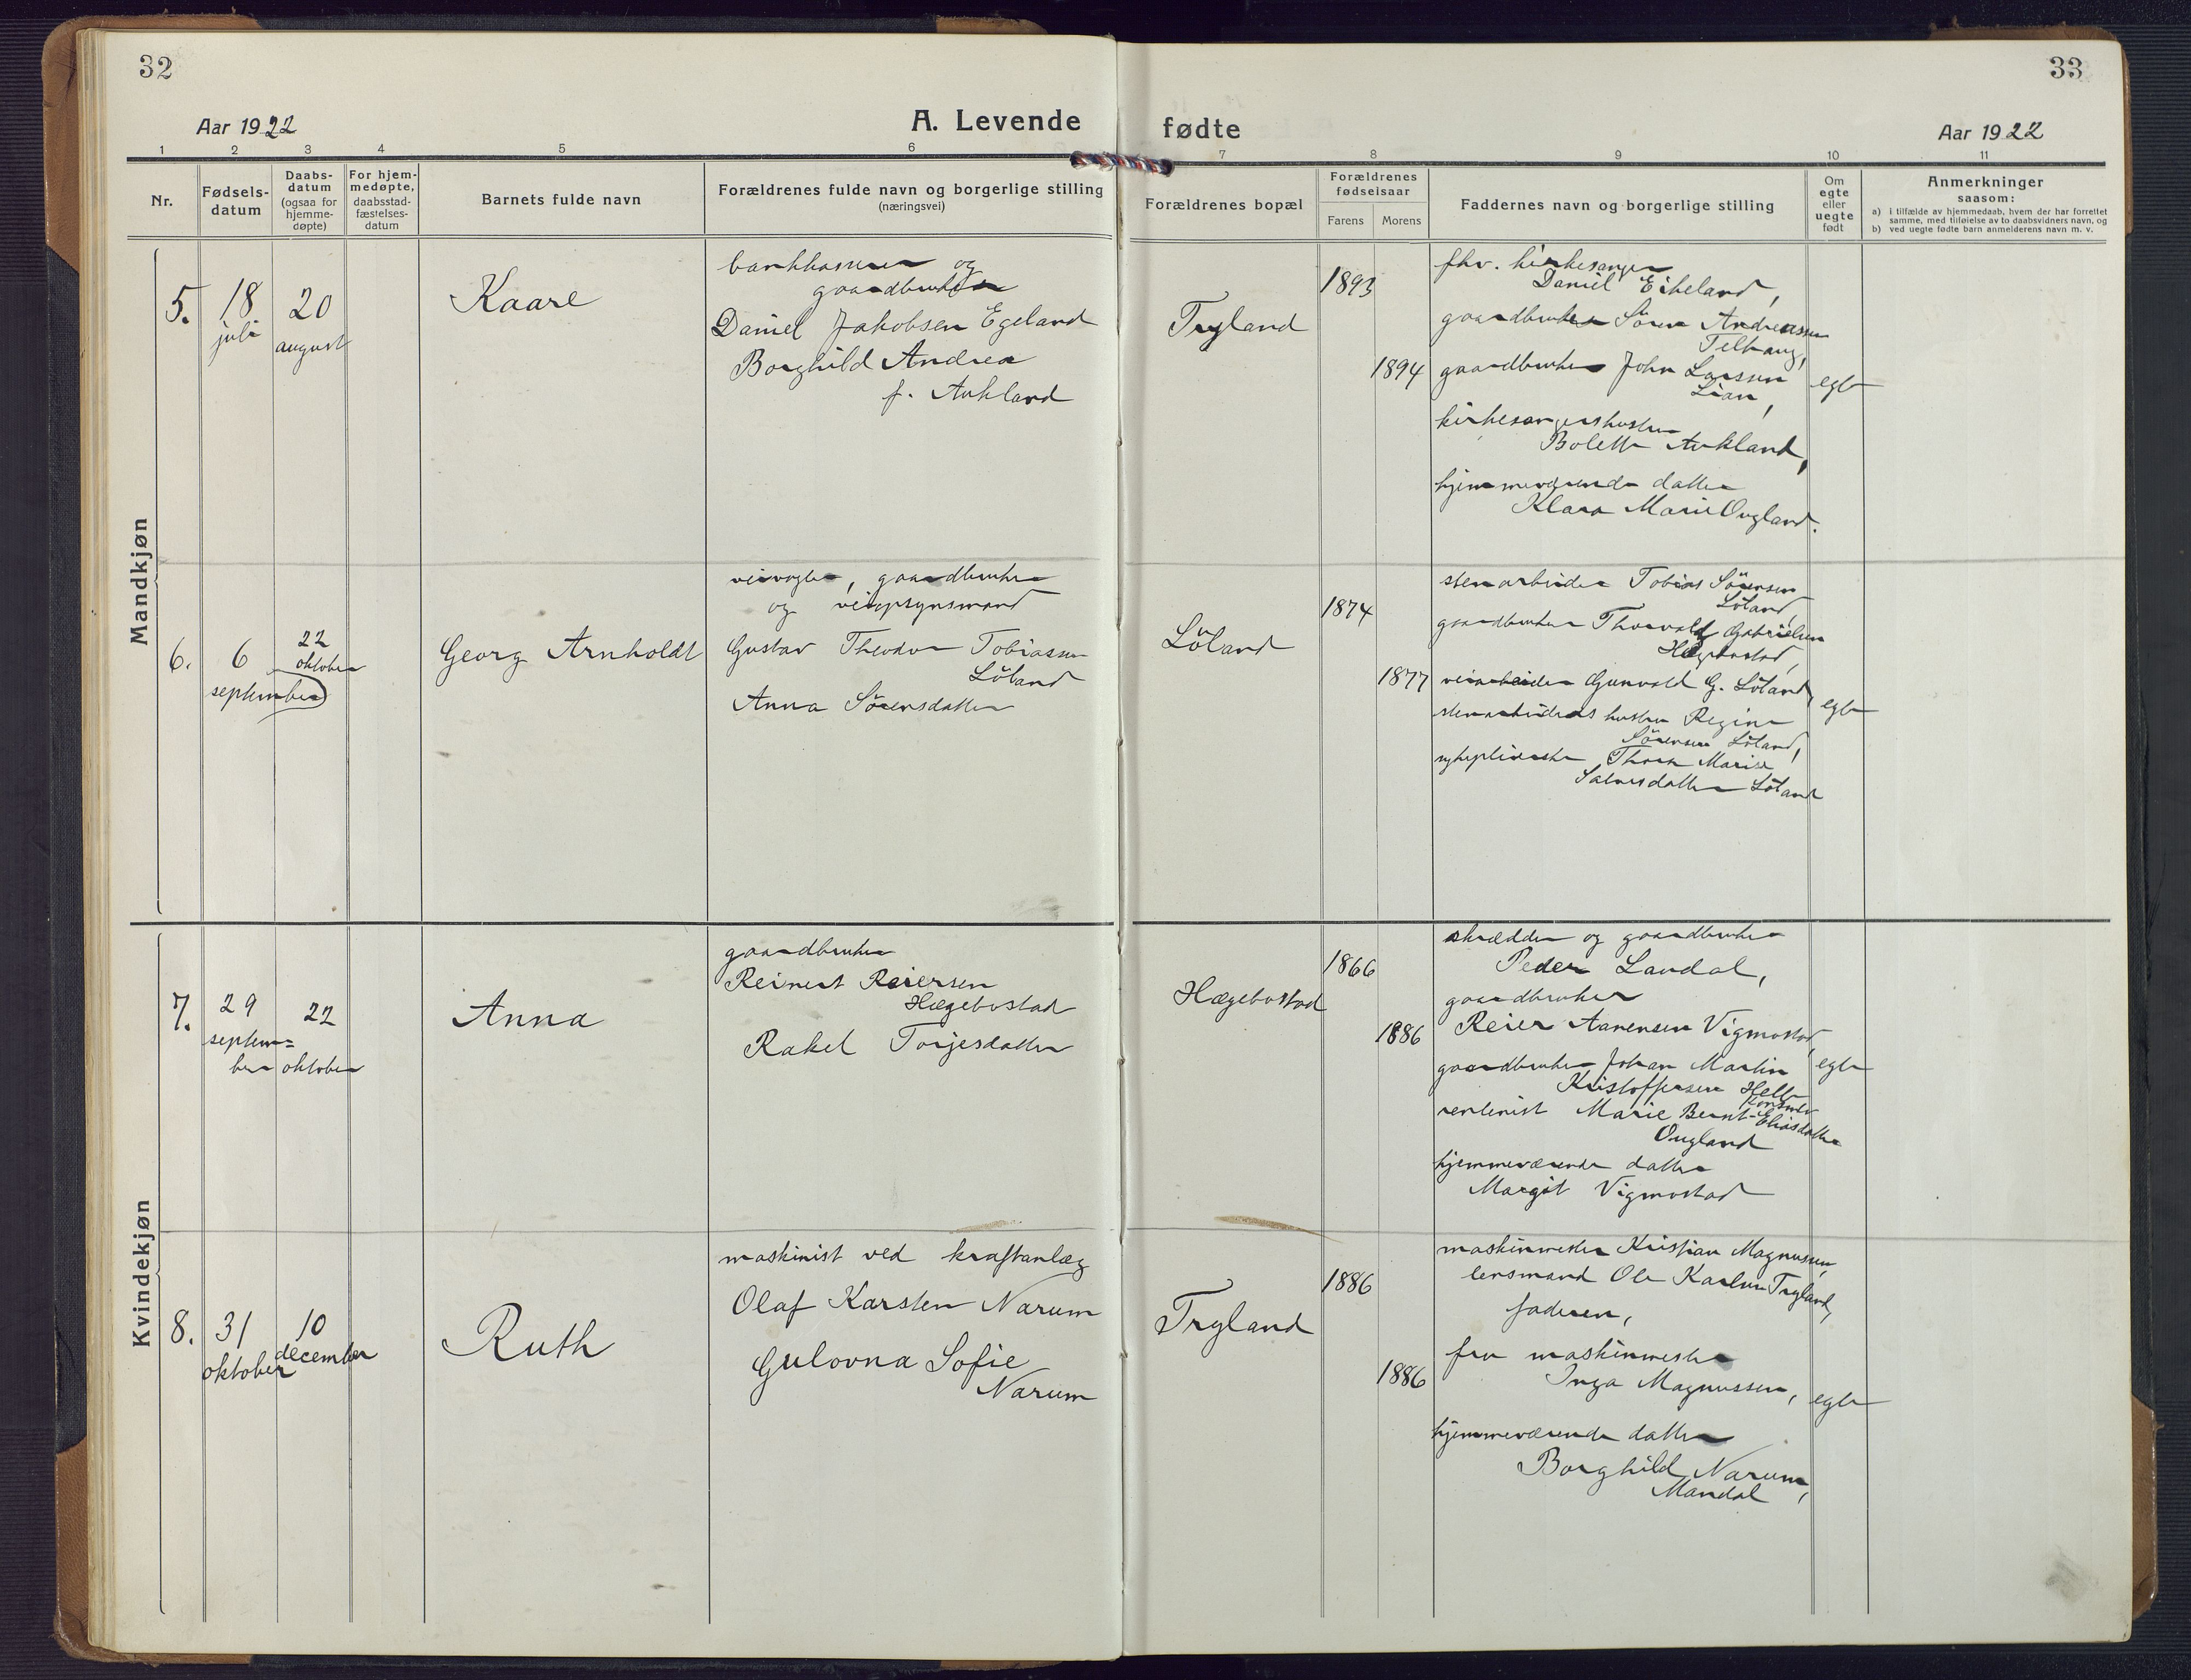 32
33
Aar 1922
A. Levende
fødte
Aar 1922
1 2 3 4 5 6 7 8 9 10 11
Nr.
Fødsels-
datum
Daabs-
datum
(ogsaa for
hjemme-
døpte)
For hjem-
medøpte,
daabsstad-
fæstelses-
datum
Barnets fulde navn
Forældrenes fulde navn og borgerlige stilling
(næringsvei)
Forældrenes bopæl
Forældrenes
fødselsaar
Farens
Morens
Faddernes navn og borgerlige stilling
Om
egte
eller
uegte
født
Anmerkninger
saasom:
a) i tilfælde av hjemmedaab, hvem der har forrettet
samme, med tilføielse av to daabsvidners navn, og
b) ved uegte fødte barn anmelderens navn m. v.
Mandkjøn
5.
18
juli
20
august
Kaare
bankkasserer og
gaardbruker
Daniel Jakobsen Egeland
Borghild Andrea
f. Aukland
Tryland
1893
1894
fhv. kirkesanger
Daniel Eikeland,
gaardbruker Sören Andreassen
Telhaug,
gaardbruker John Larsen
Lian,
kirkesangershustru
Bolette Aukland,
hjemmeværende datter
Klara Marie Ougland.
egte
6.
6
september
22
oktober
Georg Arnholdt
veivogter, gaardbruker
og veiopsynsmand
Gustav Theodor Tobiassen
Löland
Anna Sörensdatter
Löland
1874
1877
stenarbeider Tobias Sörensen
Löland
gaardbruker Thorvald Gabrielsen
Hægebostad,
veiarbeider Gunvald G. Löland,
stenarbeiders hustru Regine
Sörensen Löland,
sykepleierske Thora Marie
Salvesdatter Löland
egte
Kvindekjøn
7.
29
septem=
ber
22
oktober
Anna
gaardbruker
Reinert Reiersen
Hægebostad
Rakel Torjesdatter
Hægebostad
1866
1886
skrædder og gaardbruker
Peder Landal,
gaardbruker
Reier Aanensen Vigmostad,
gaardbruker Johan Martin
Kristoffersen Helle
rentenist Marie Bernt- Eliasdatter
Ougland
hjemmeværende datter
Margit Vigmostad
egte
8.
31
oktober
10
december
Ruth
maskinist ved kraftanlæg
Olaf Karsten Narum
Gulovna Sofie
Narum
Tryland
1886
1886
maskinmester Kristian Magnussen,
lensmand Ole Karlsen Tryland,
faderen,
fru maskinmester
Inga Magnussen,
hjemmeværende datter
Borghild Narum,
Mandal
egte